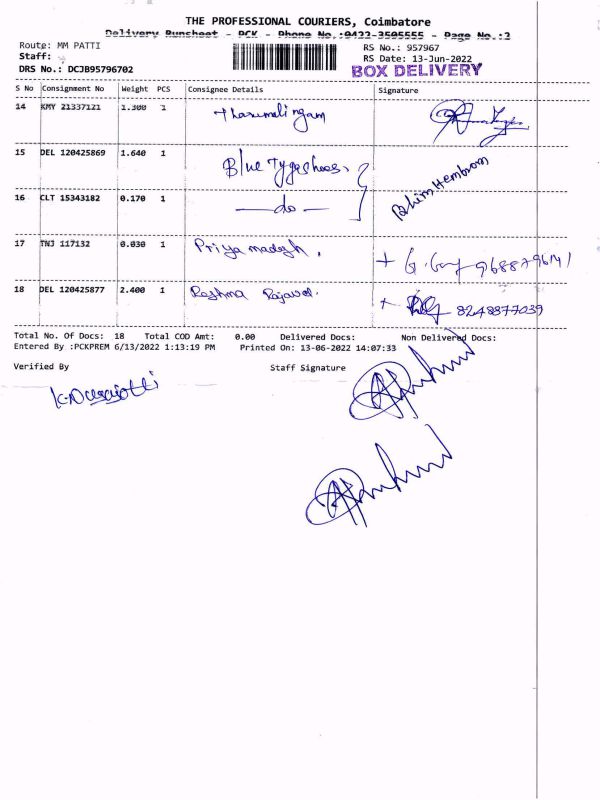 THE PROFESSIONAL COURIERS, Coimbatore
Delivery Runsheet - PCK - Phone No.:0422-3505555 - Page No.:2
Route: MM PATTI RS No.: 957967
Staff: RS Date: 13-Jun-2022
DRS No.: DCJB95796702 BOX DELIVERY
S No Consignment No Weight PCS Consignee Details Signature
14 KMY 21337121 1.300 1
15 DEL 120425869 1.640 1 Blue
16 CLT 15343182 0.170 1 — do — Bhim Hembrom
17 TNJ 117132 0.030 1 Priya 9688796141
18 DEL 120425877 2.400 1 Reshma Rajavel. 8248877039
Total No. Of Docs: 18 Total COD Amt: 0.00 Delivered Docs: Non Delivered Docs:
Entered By :PCKPREM 6/13/2022 1:13:19 PM Printed On: 13-06-2022 14:07:33
Verified By Staff Signature